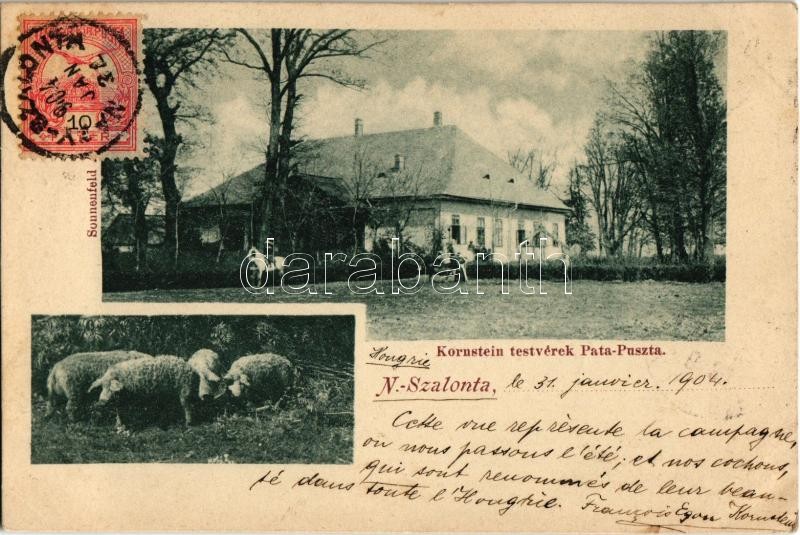 10
Sonnenfeld
darabanth
Kornstein testvérek Pata-Puszta.
Hongrie
N.-Szalonta, le 31. janvier. 1904.
Cette vue représente la campagne,
où nous passons l'été; et nos cochons,
qui sont renommés de leur beau-
té dans toute l'Hongrie. François Egon Kornstein